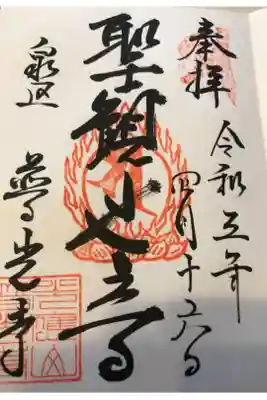 奉拝
令和五年
四月十六日
聖観世音
普光寺